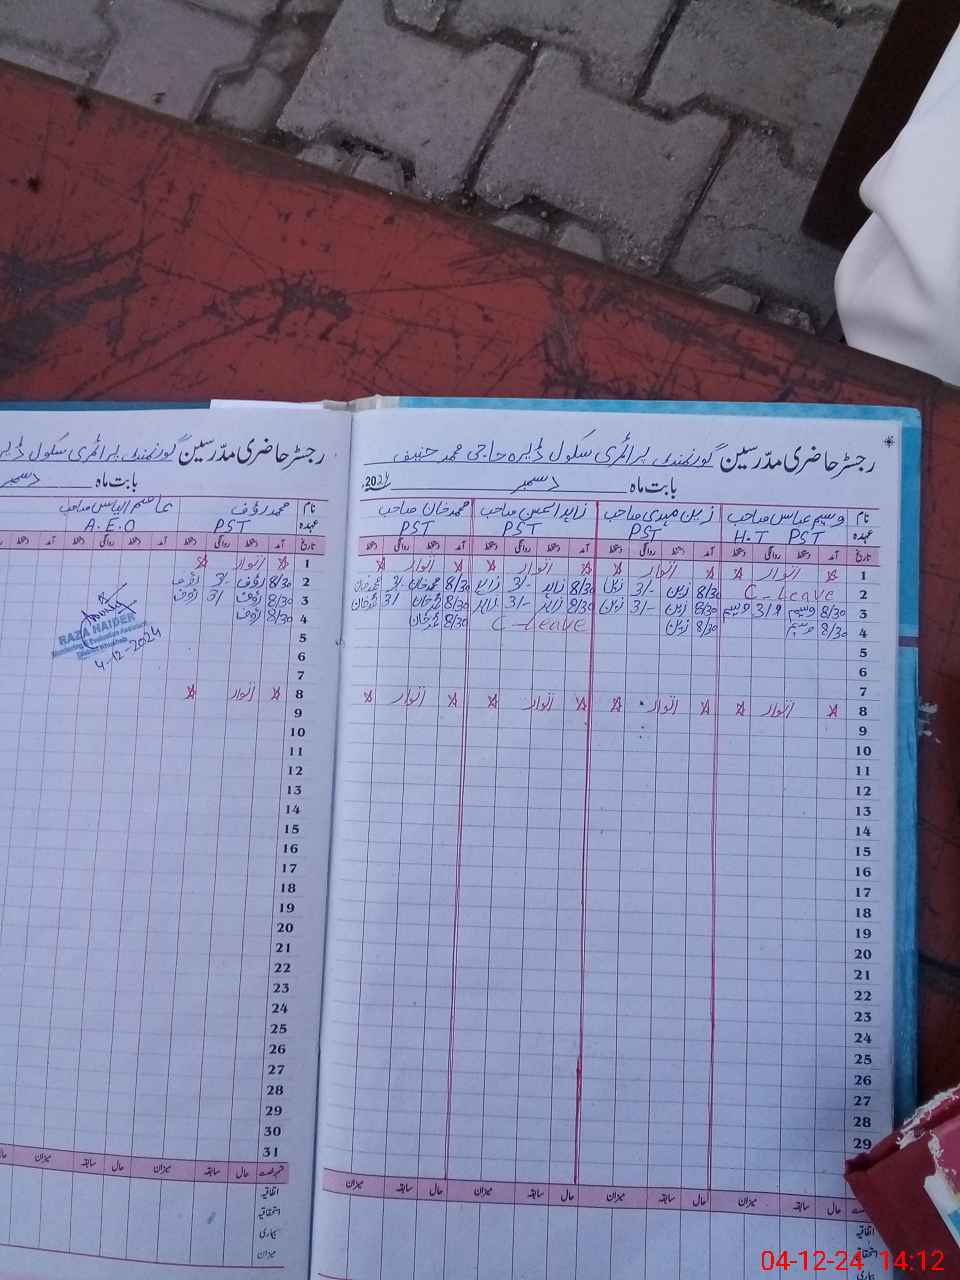 رجسٹر حاضری مدرسین گورنمنٹ پرائمری سکول ڈیرہ حاجی محمد حنیف
بابت ماہ دسمبر 2024
نام وسیم عباس صاحب زین مہدی صاحب زاہد حسین صاحب محمد خان صاحب
عہدہ H.T PST PST PST PST
تاریخ آمد دستخط روانگی دستخط آمد دستخط روانگی دستخط آمد دستخط روانگی دستخط آمد دستخط روانگی دستخط
1 اتوار اتوار اتوار اتوار
2 C-Leave 8/30 زین 3/- زین 8/30 زاہد 3/- زاہد 8/30 محمد خان 3/- محمد خان
3 8/30 وسیم 3/9 وسیم 8/30 زین 3/- زین 8/30 زاہد 3/- زاہد 8/30 محمد خان 3/ محمد خان
4 8/30 وسیم 8/30 زین C-Leave 8/30 محمد خان
5
6
7
8 اتوار اتوار اتوار اتوار
9
10
11
12
13
14
15
16
17
18
19
20
21
22
23
24
25
26
27
28
29
حال سابقہ میزان حال سابقہ میزان حال سابقہ میزان حال سابقہ میزان
اتفاقیہ
استحقاقیہ
بیماری
رجسٹر حاضری مدرسین گورنمنٹ پرائمری سکول ڈیرہ
بابت ماہ دسمبر
نام محمد رؤف عاصم الیاس صاحب
عہدہ PST A.E.O
تاریخ آمد دستخط روانگی دستخط آمد دستخط روانگی دستخط
1 اتوار
2 8/30 رؤف 3/- رؤف
3 8/30 رؤف 3/ رؤف
4 8/30 رؤف
5
6
7
8 اتوار
9
10
11
12
13
14
15
16
17
18
19
20
21
22
23
24
25
26
27
28
29
30
31
حال سابقہ میزان حال سابقہ میزان
اتفاقیہ
استحقاقیہ
بیماری
میزان
RAZA HAIDER
Monitoring & Evaluation Assistant
District Khushab
4-12-2024
04-12-24 14:12